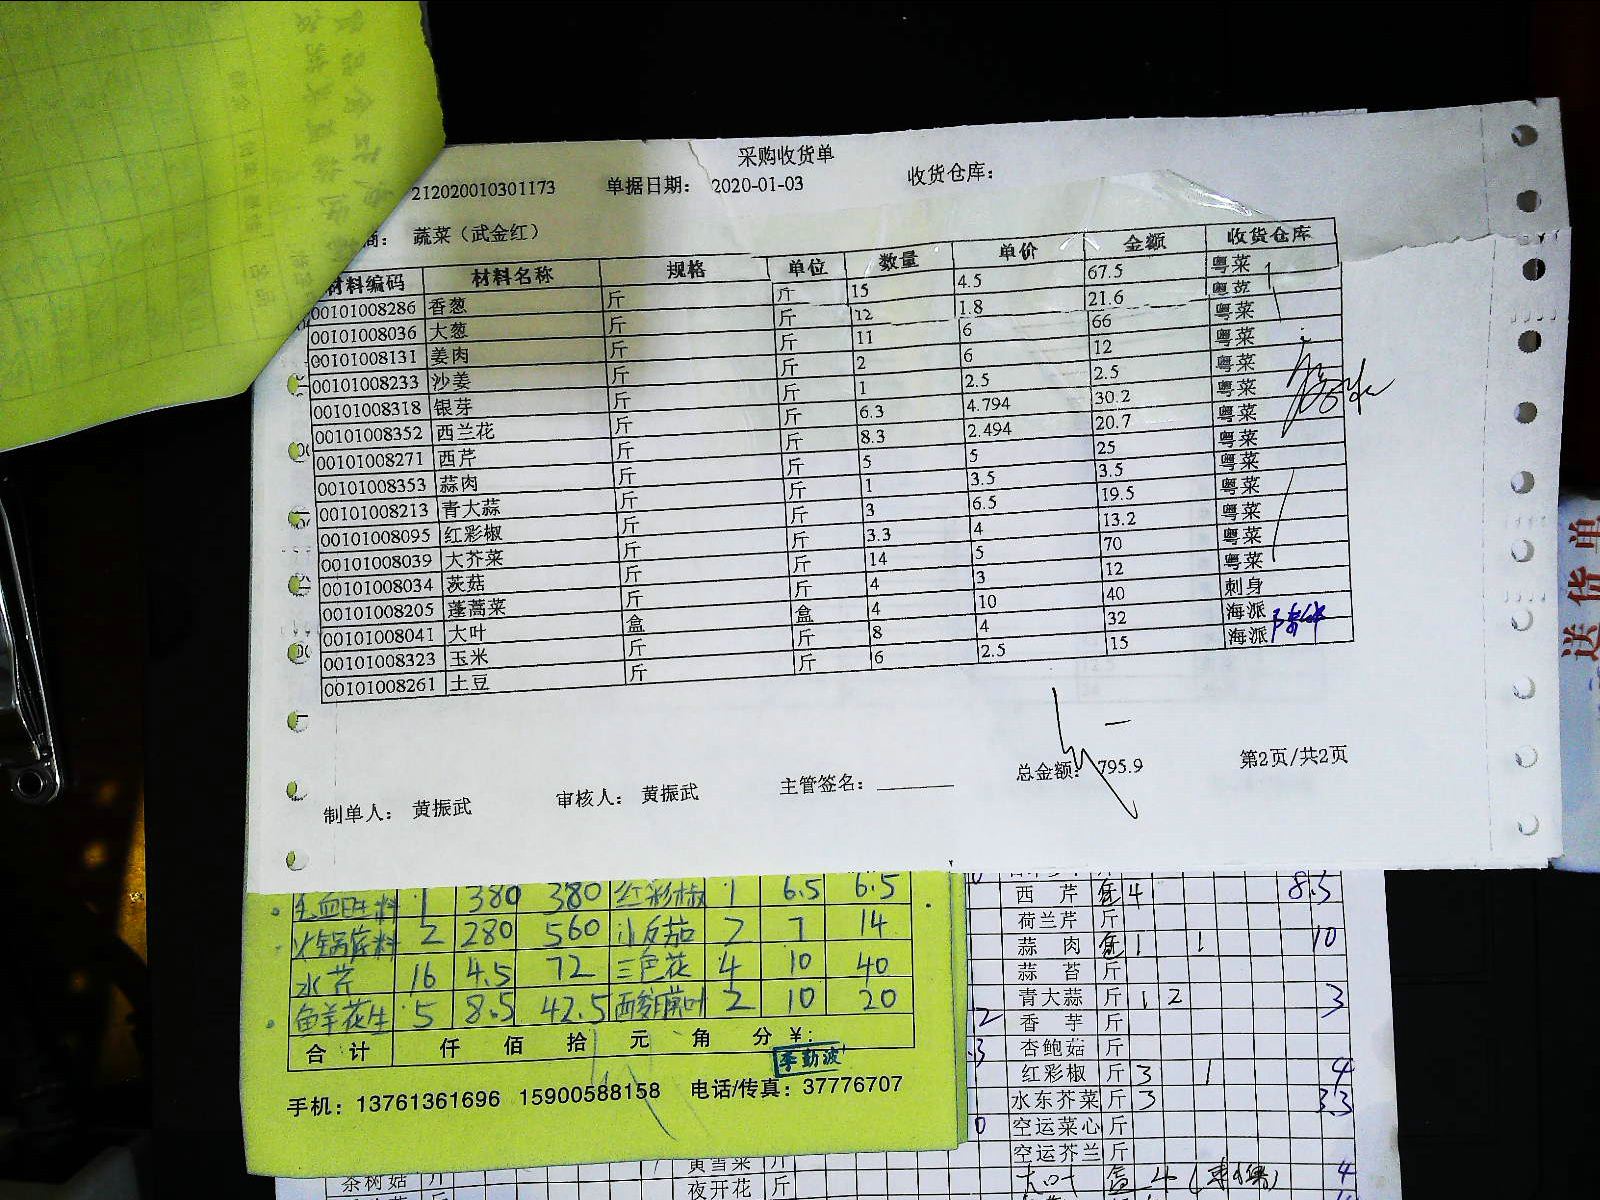 采购收货单
212020010301173 单据日期: 2020-01-03 收货仓库:
商: 蔬菜（武金红）
材料编码 材料名称 规格 单位 数量 单价 金额 收货仓库
00101008286 香葱 斤 斤 15 4.5 67.5 粤菜
00101008036 大葱 斤 斤 12 1.8 21.6 粤菜
00101008131 姜肉 斤 斤 11 6 66 粤菜
00101008233 沙姜 斤 斤 2 6 12 粤菜
00101008318 银芽 斤 斤 1 2.5 2.5 粤菜
00101008352 西兰花 斤 斤 6.3 4.794 30.2 粤菜
00101008271 西芹 斤 斤 8.3 2.494 20.7 粤菜
00101008353 蒜肉 斤 斤 5 5 25 粤菜
00101008213 青大蒜 斤 斤 1 3.5 3.5 粤菜
00101008095 红彩椒 斤 斤 3 6.5 19.5 粤菜
00101008039 大芥菜 斤 斤 3.3 4 13.2 粤菜
00101008034 茨菇 斤 斤 14 5 70 粤菜
00101008205 蓬蒿菜 斤 斤 4 3 12 粤菜
00101008041 大叶 盒 盒 4 10 40 刺身
00101008323 玉米 斤 斤 8 4 32 海派
00101008261 土豆 斤 斤 6 2.5 15 海派
制单人: 黄振武 审核人: 黄振武 主管签名: 总金额: 795.9 第2页/共2页
送货单
1 380 380 红彩椒 1 6.5 6.5
火锅底料 2 280 560 7 14
水芹 16 4.5 72 三色花 4 10 40
花生 5 8.5 42.5 2 10 20
合计 仟 佰 拾 元 角 分 ￥:
李勤波
手机: 13761361696 15900588158 电话/传真: 37776707
西芹 斤 4 8.5
荷兰芹 斤
蒜肉 斤 1 1 10
蒜苔 斤
青大蒜 斤 1 2 3
香芋 斤
杏鲍菇 斤
红彩椒 斤 3 1 4
水东芥菜 斤 3 3.3
空运菜心 斤
空运芥兰 斤
大叶 盒 4 4
黄雪菜 斤
茶树菇 斤
夜开花 斤